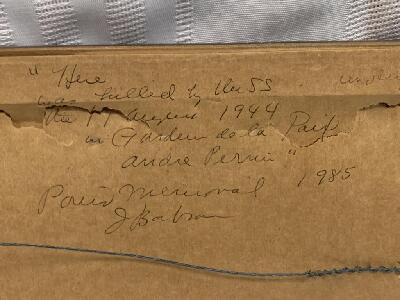 "Here
was killed by the SS
the 19 August 1944
in Garden de la Paix
André Perrin"
Paris Memorial 1985